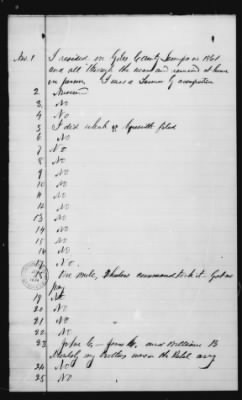 No. 1 I resided in Giles County Tenn in 1861
and all through the war and remained at home
I was a Farmer by occupation
2
3. No
4 No
5 I did
6 No
7 No
8 No
9 No
10 No
11 No
12 No
13 No
14 No
15 No
16 No
17 No.
18 One mule, command took it. Got no
pay
19 No
20 No
21 No
22 No
23 John C. and William B
my brothers were in the Rebel army
24 No
25 No